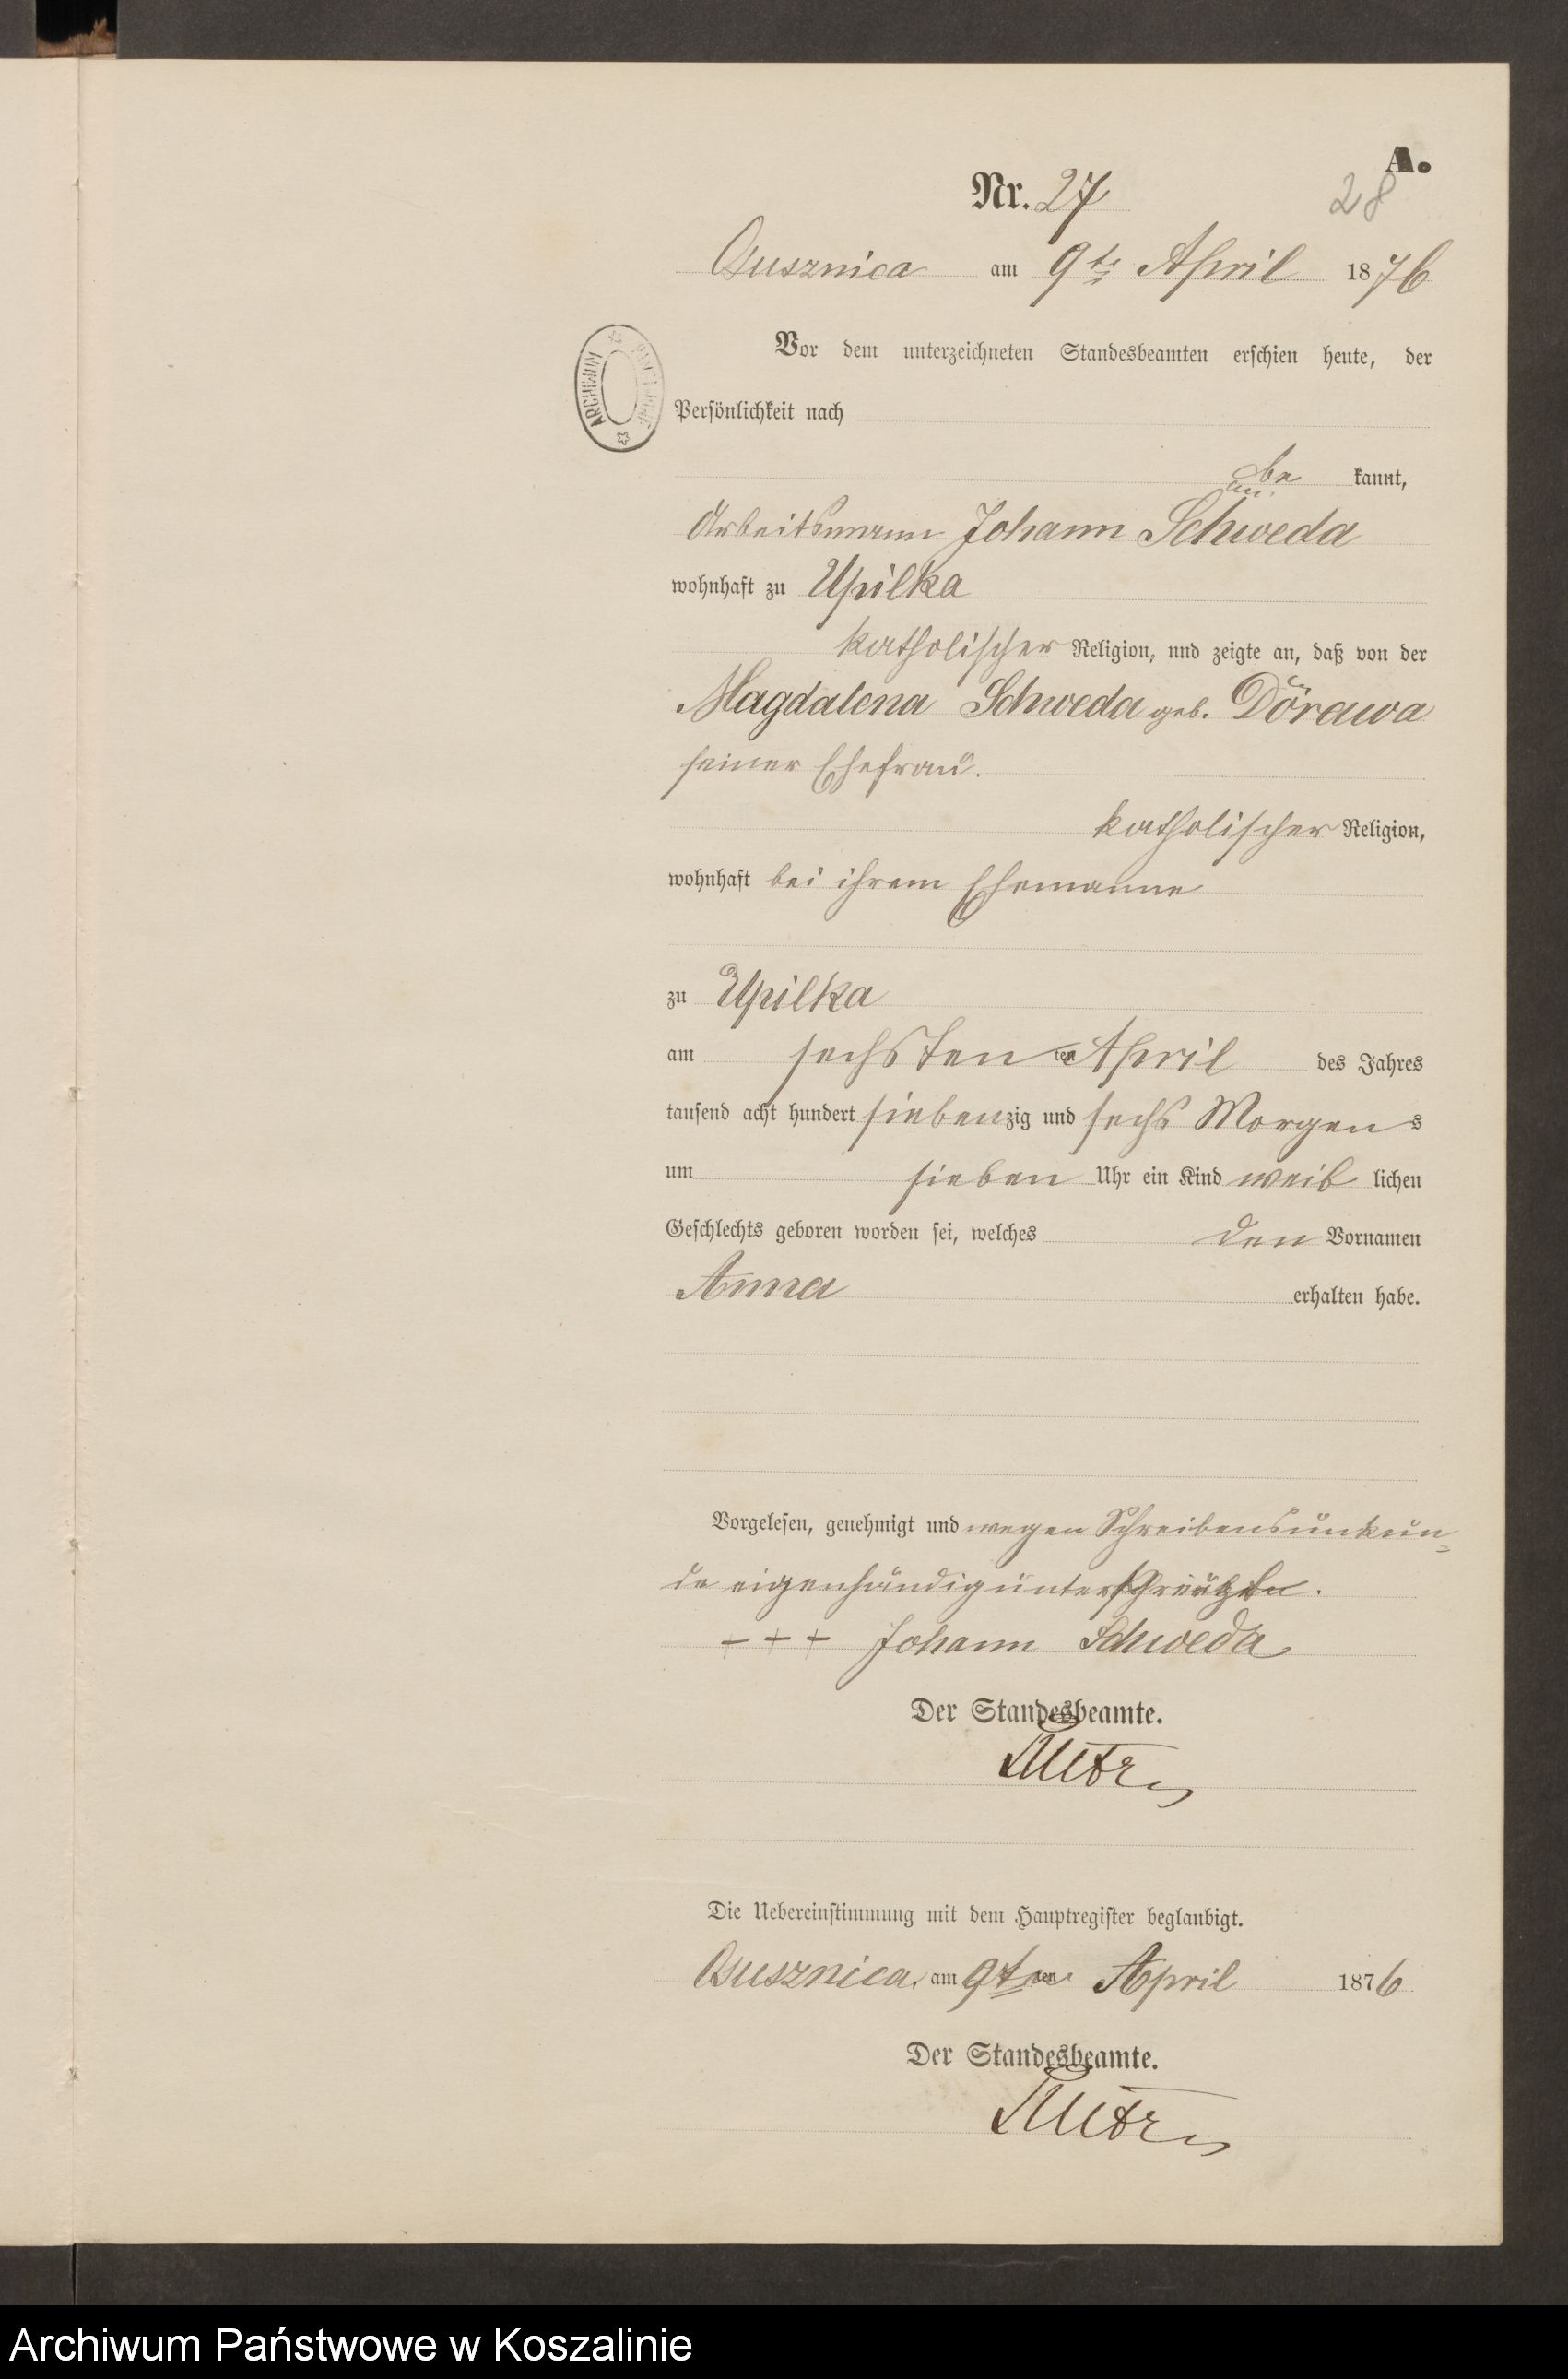 A.
Nr. 27
28
Ossusznica am 9te April 1876
ARCHIWUM
Vor dem unterzeichneten Standesbeamten erschien heute, der
Persönlichkeit nach
be kannt,
Arbeitsmann Johann Schweda
wohnhaft zu Upilka
katholischer Religion, und zeigte an, daß von der
Magdalena Schweda geb. Dörawa
seiner Ehefrau.
katholischer Religion,
wohnhaft bei ihrem Ehemanne
zu Upilka
am sechsten ten April des Jahres
tausend acht hundert siebenzig und sechs Morgens
um sieben Uhr ein Kind weib lichen
Geschlechts geboren worden sei, welches den Vornamen
Anna
erhalten habe.
Vorgelesen, genehmigt und wegen Schreibensunkun=
de eigenhändig unterkreuzt.
+ + + Johann Schweda
Der Standesbeamte.
Die Uebereinstimmung mit dem Hauptregister beglaubigt.
am 9ten April 1876
Der Standesbeamte.
Archiwum Państwowe w Koszalinie